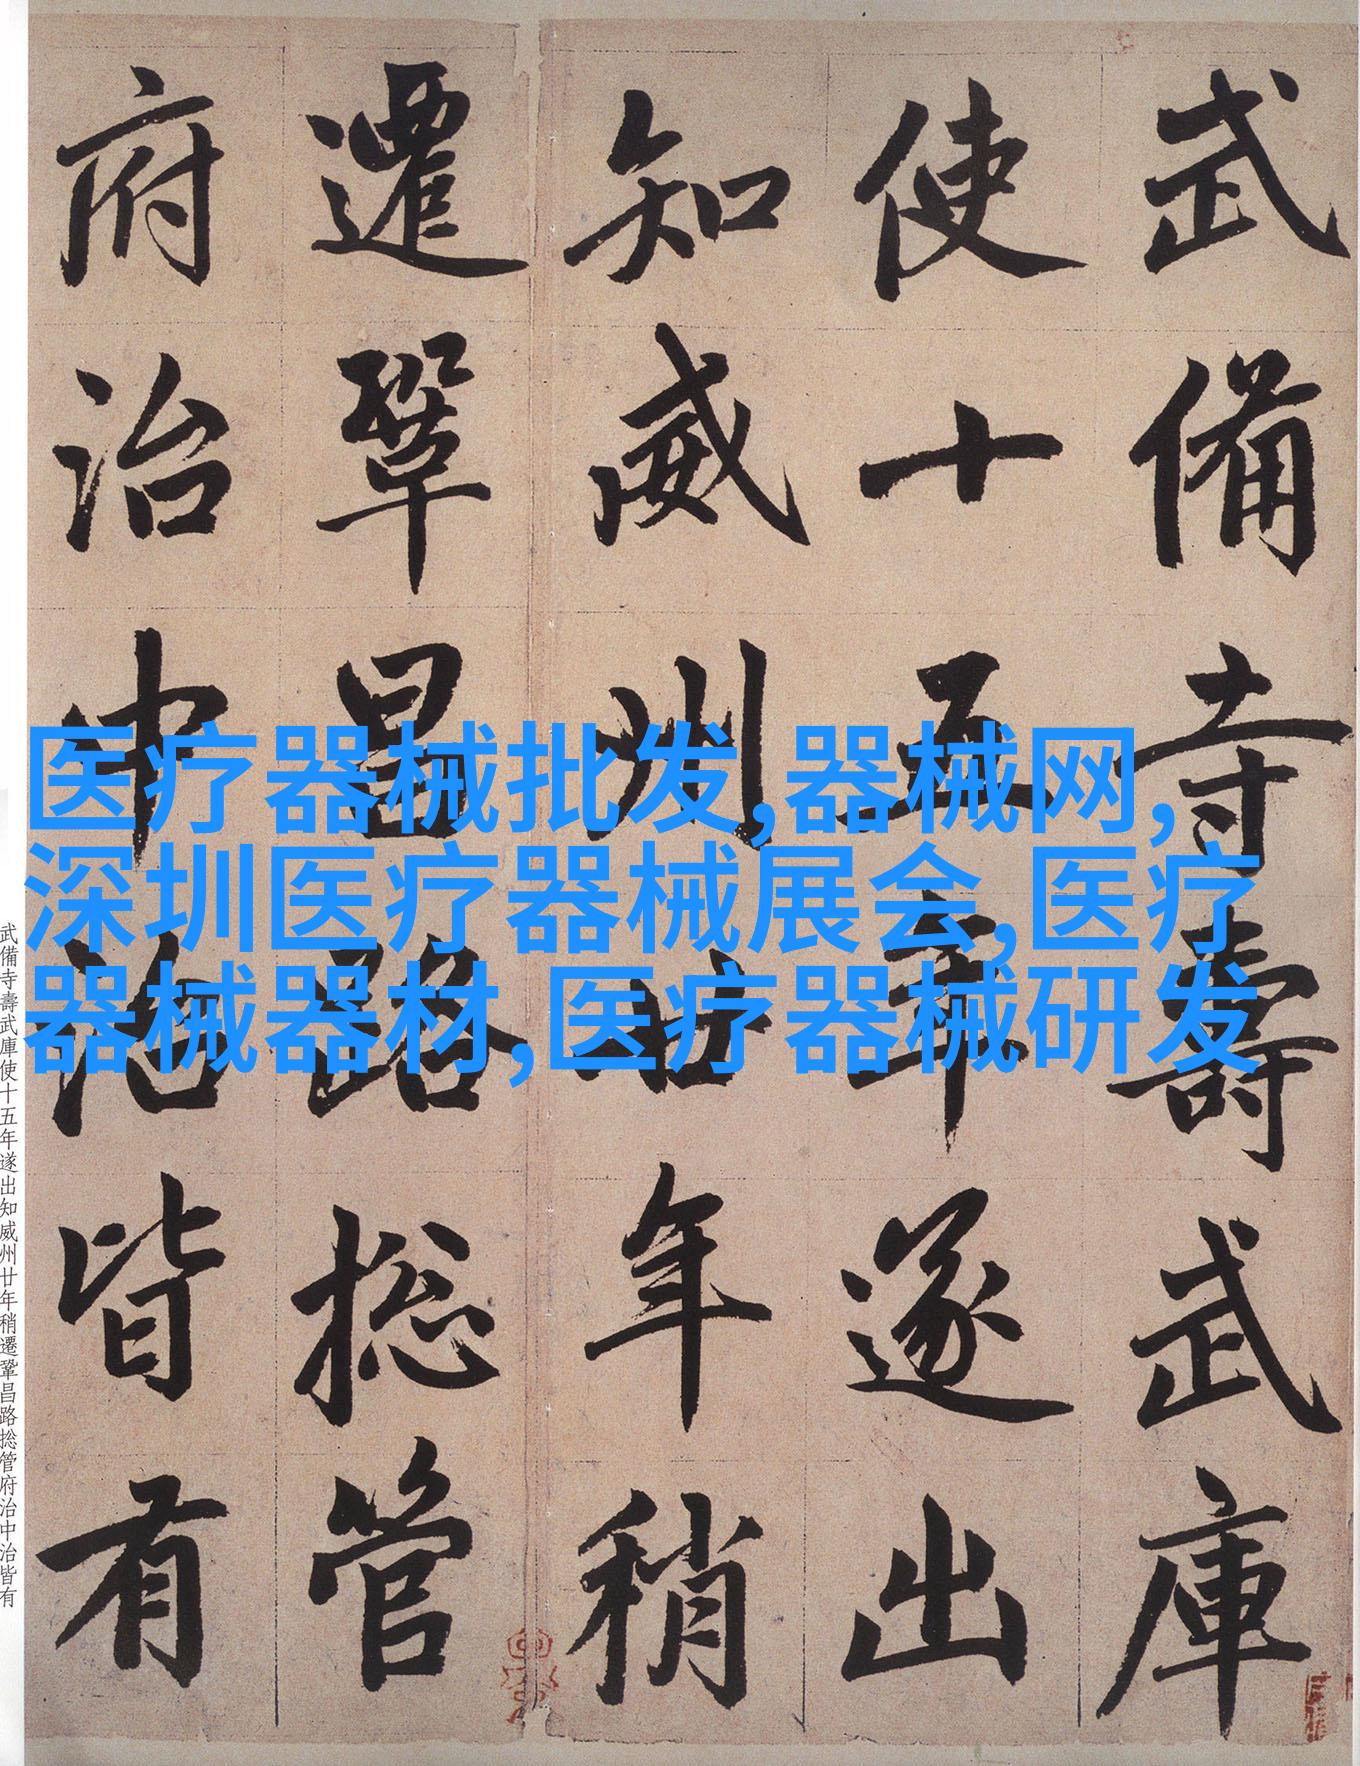 武備寺壽武庫
使十五年遂出
知威州廿年稍
遷鞏昌路捴管
府治中治皆有
医疗器械批发,器械网,
深圳医疗器械展会,医疗
器械器材,医疗器械研发
武備寺壽武庫使十五年遂出知威州廿年稍遷鞏昌路捴管府治中治皆有